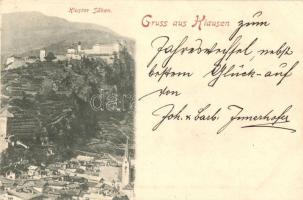 Kloster Säben.
Gruss aus Klausen
zum
Jahreswechsel, nebst
bestem Glück-auf
von
Joh. & Barb. Innerhofer